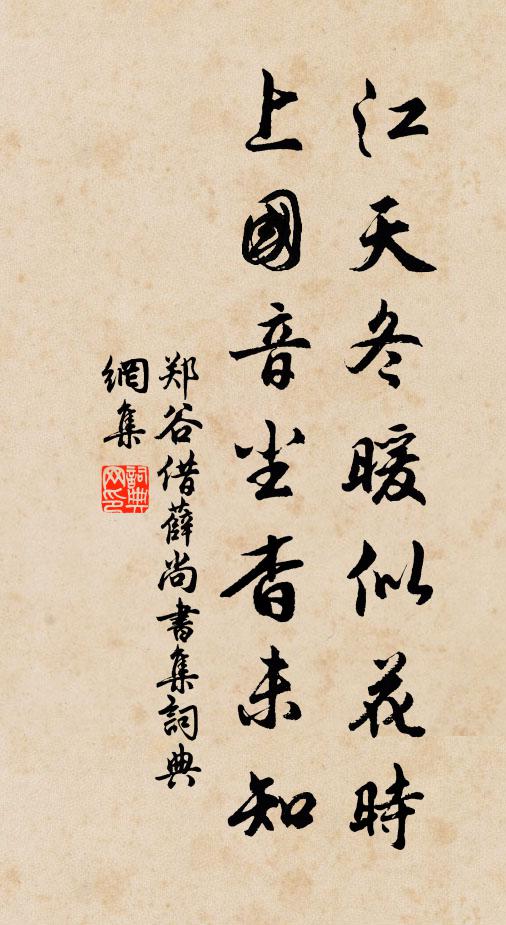 江天冬暖似花時
上國音尘杳未知
郑谷借薛尚書集詞典
網集
詞典网印